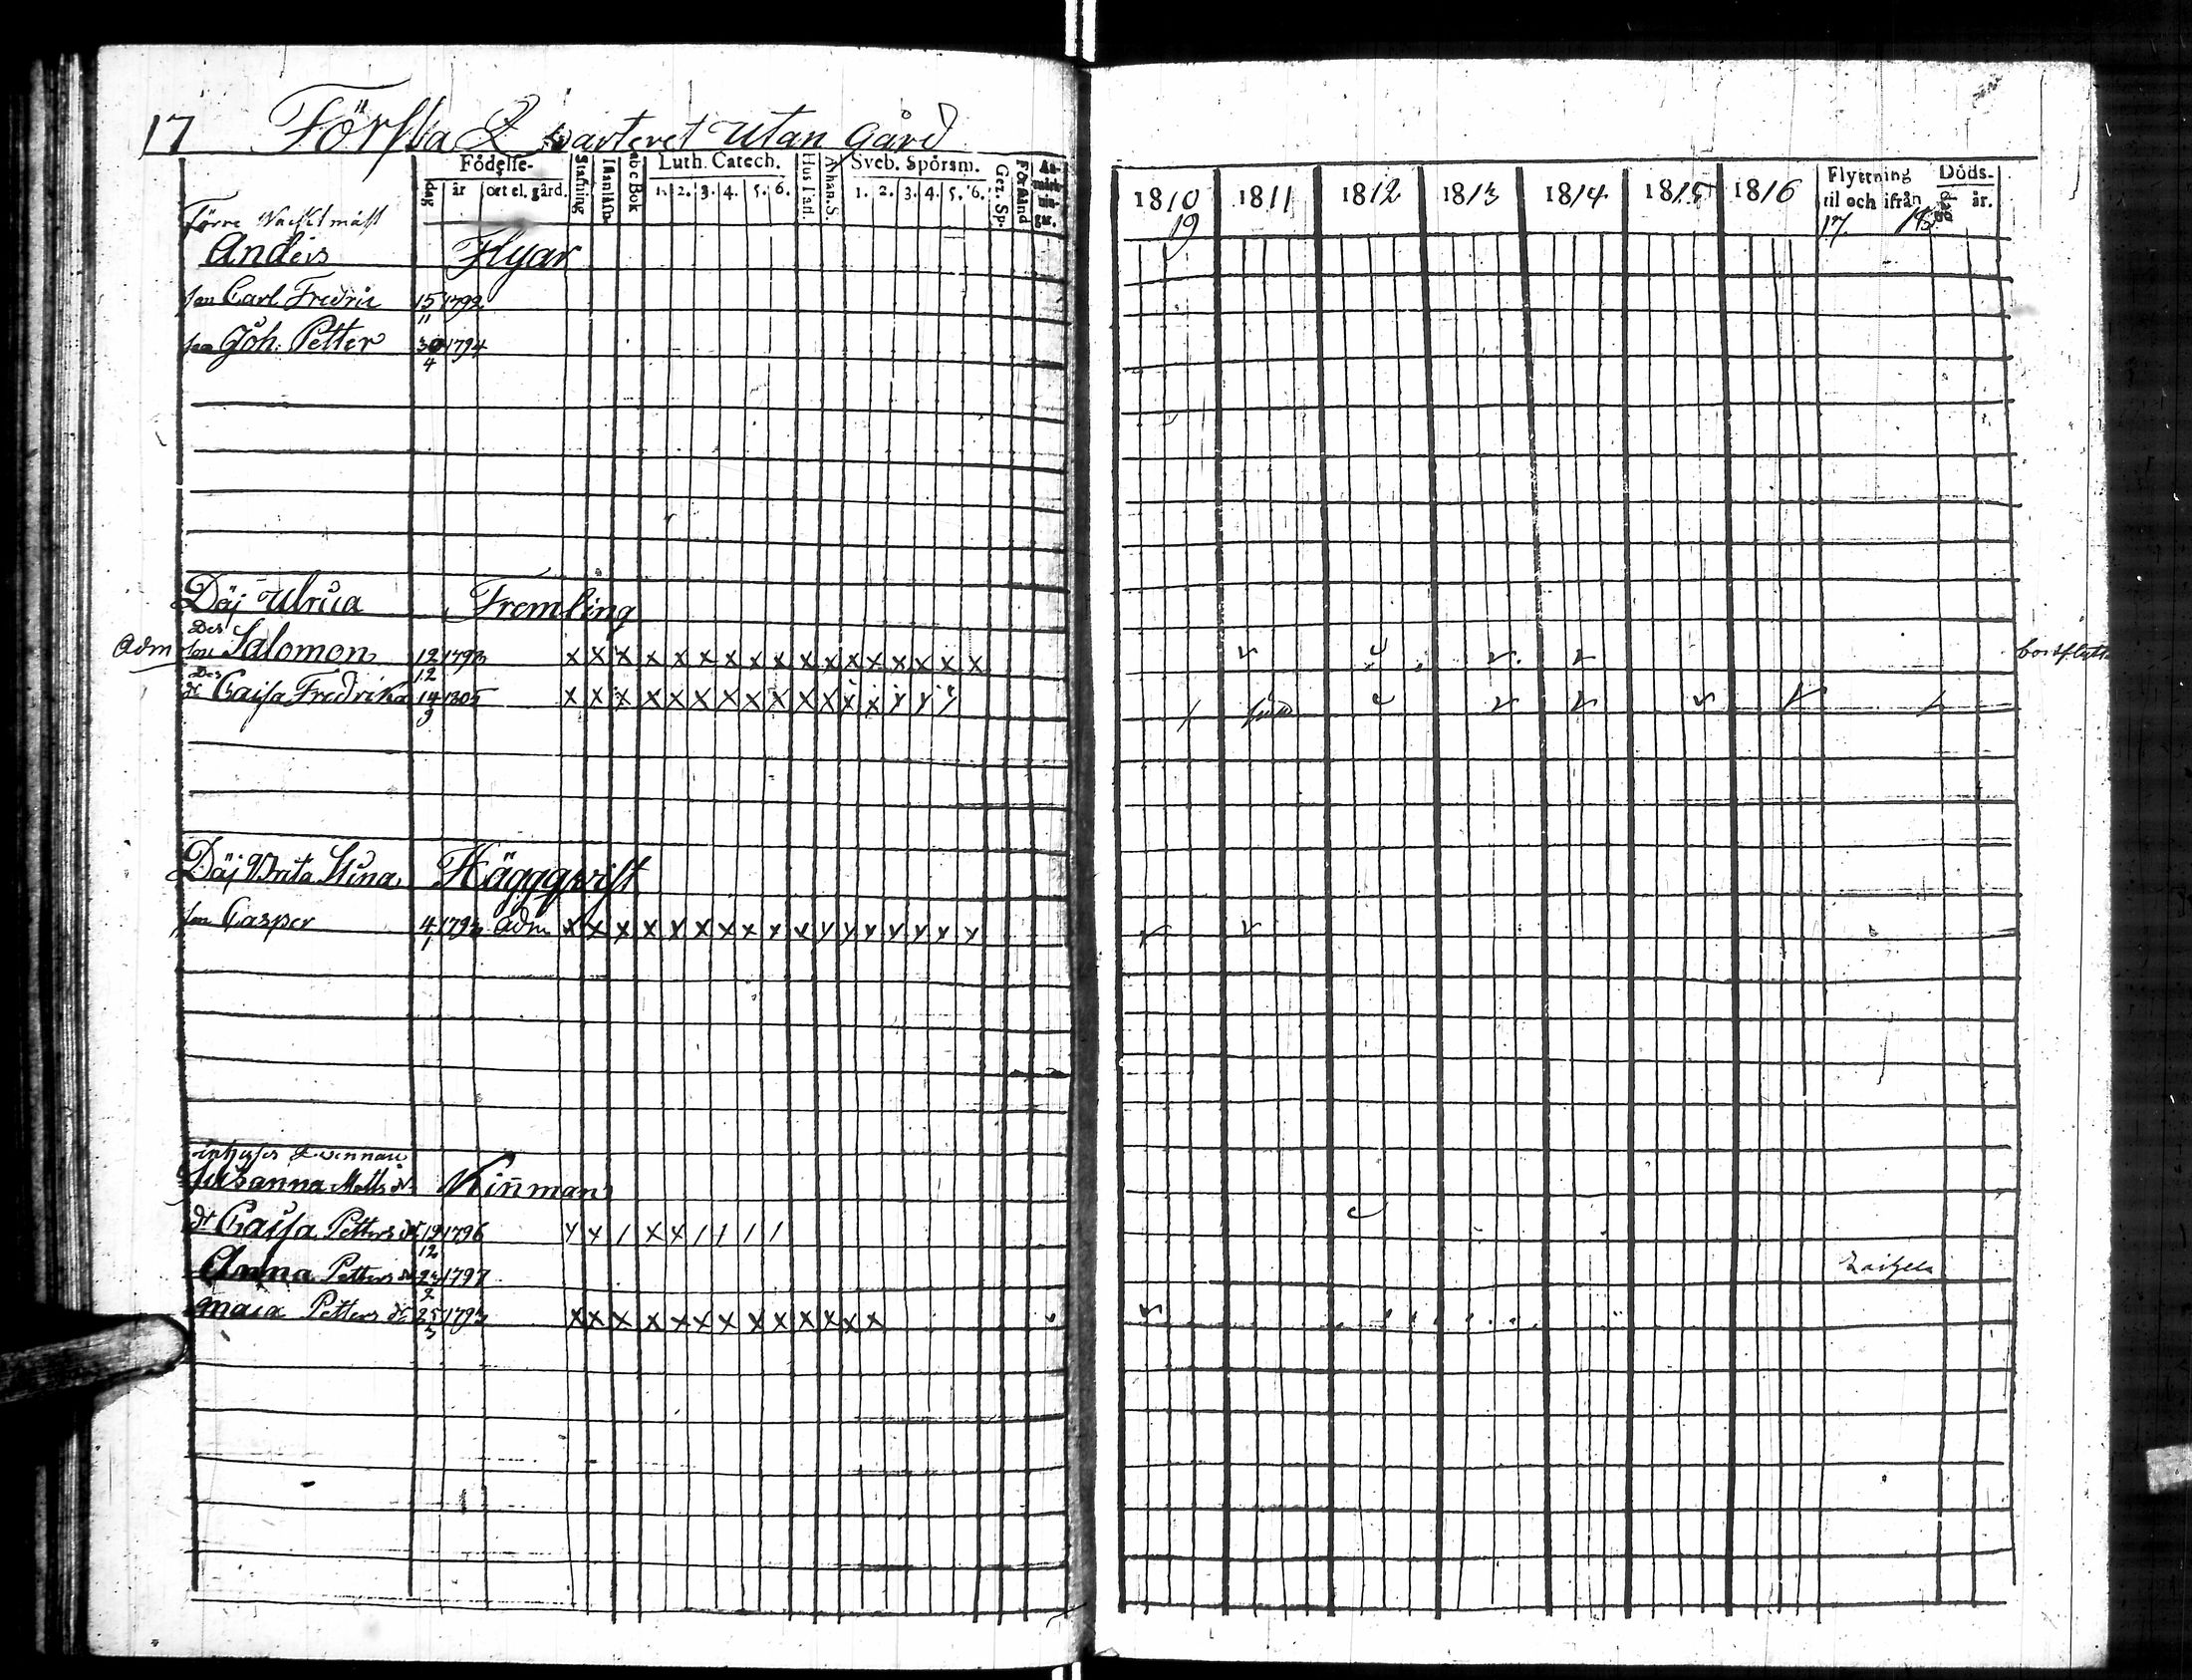 17 Första Qvarteret utan Gård
Födelse- Stafning abc Bok Luth. Catech. Sveb. Spörsm. Gez. Sp. Förstånd Anmärkningar.
dag år ort el. gård. 1. 2. 3. 4. 5. 6. 1. 2. 3. 4. 5. 6.
1810 1811 1812 1813 1814 1815 1816 Flyttning til och ifrån Döds- dag år.
19 17 18
Förre
Anders Flyar
son Carl Fredric 15/11 1792
son Joh. Petter 30/4 1794
Däj Ulrica Fremling
Adm Des son Salomon 12/12 1793 x x x x x x x x x x x x x x x x x
Des dr Caisa Fredrika 14/9 1805 x x x x x x x x x x x x x y y y
Däj Brita Stina Häggqvist
son Casper 4/1 1793 Adm x x x x x x x x x x y y y y y y y
inhyses Qvinnan
Susanna Matts dr Kinman
dr Caisa Petters dr 19/12 1796
Anna Petters dr 23/2 1797
Maia Petters dr 25/3 1793 x x x x x x x x x x x x x